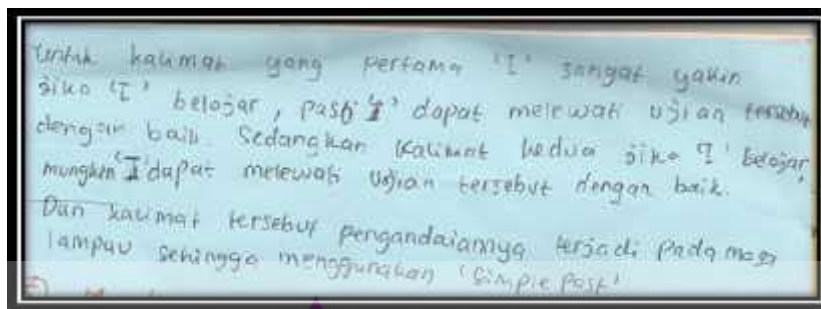 Untuk kalimat yang pertama 'I' sangat yakin
jika 'I' belajar, pasti 'I' dapat melewati ujian tersebut
dengan baik. Sedangkan kalimat kedua jika 'I' belajar,
mungkin 'I' dapat melewati ujian tersebut dengan baik.
Dan kalimat tersebut pengandaiannya terjadi pada masa
lampau sehingga menggunakan 'Simple Past'